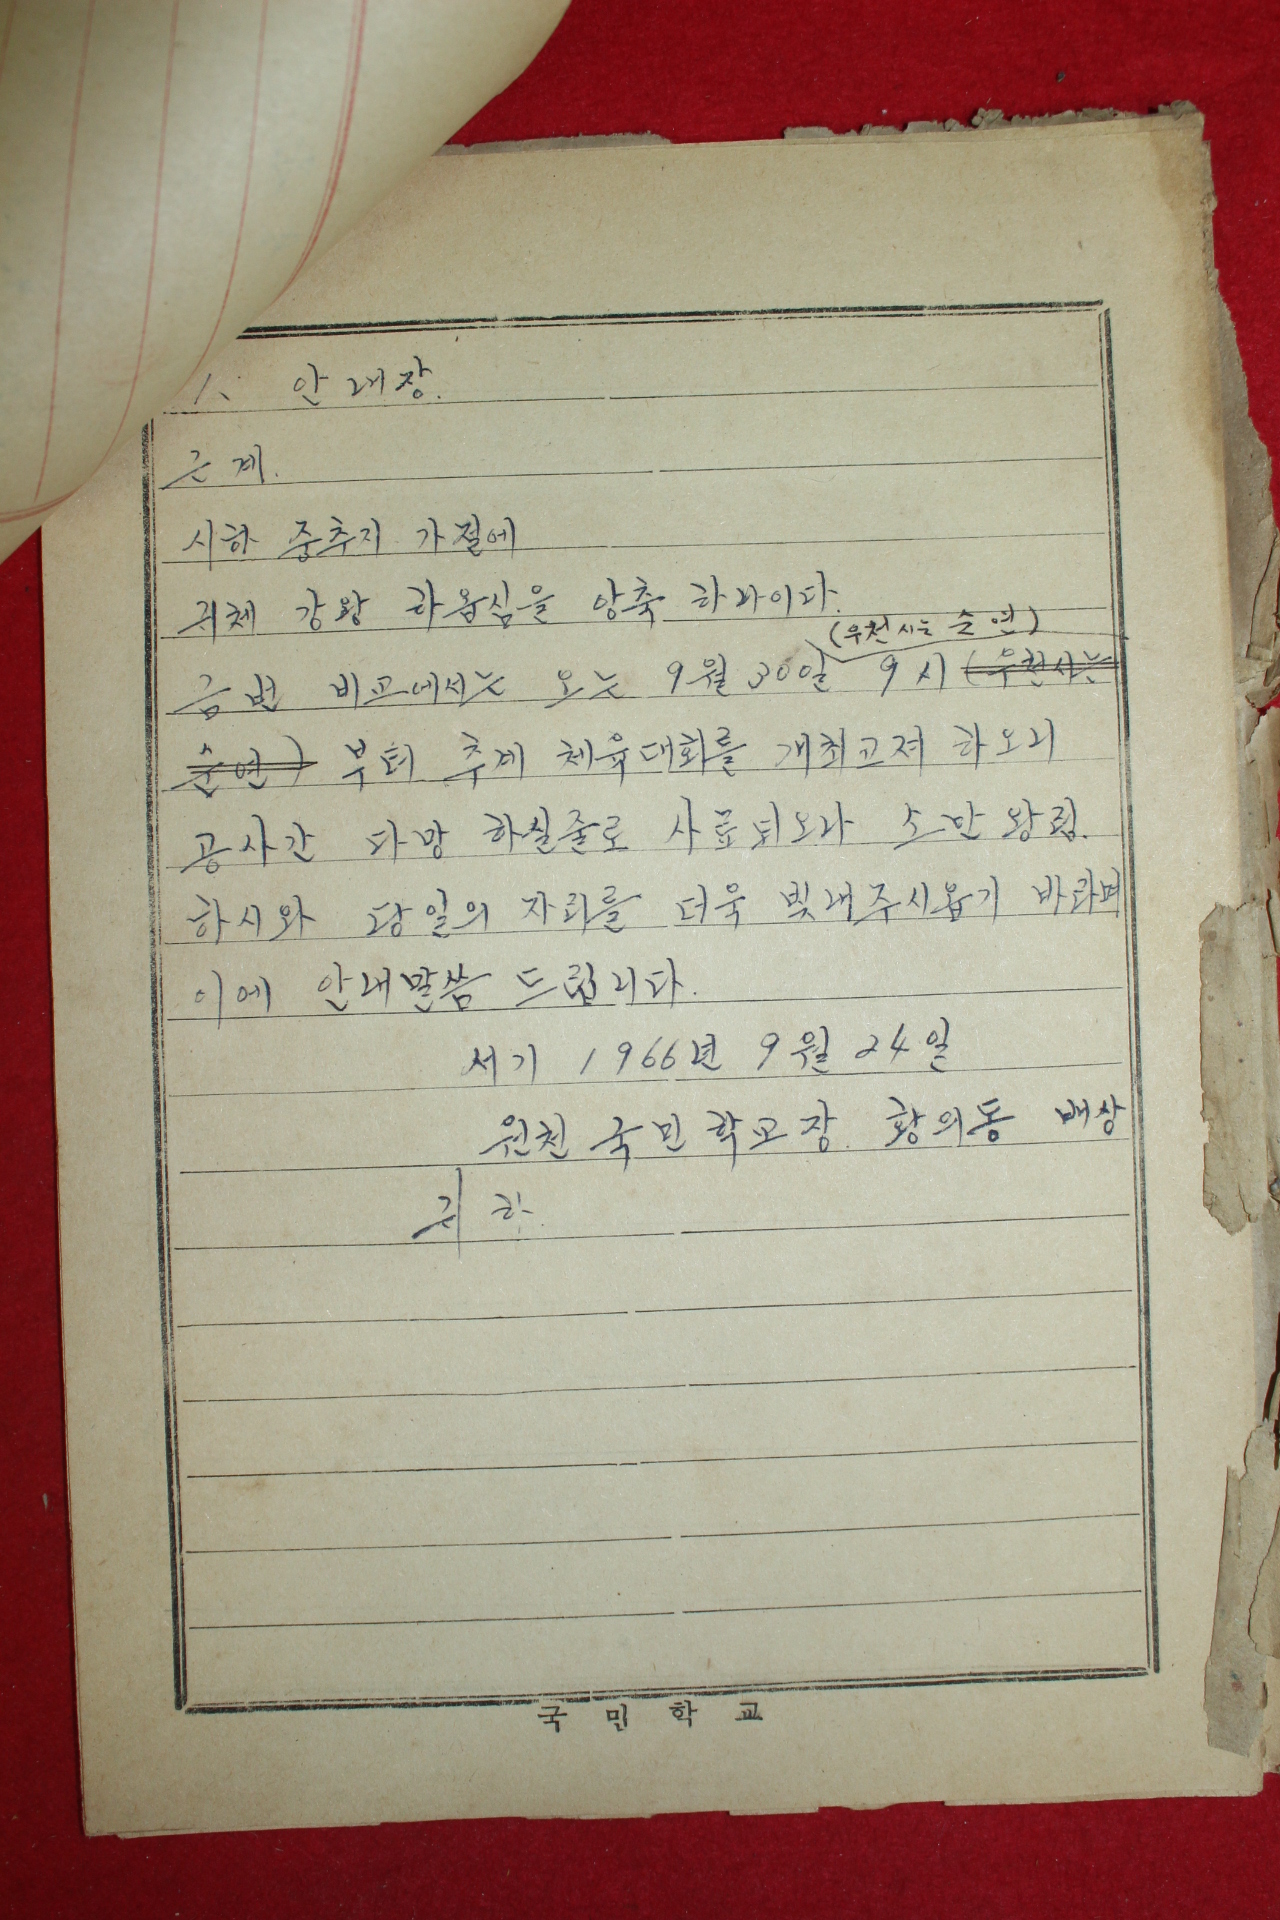 1. 안내장.
근계.
시하 중추지 가절에
귀체 강왕 하옵심을 앙축 하나이다.
(우천시는 순연)
금번 비교에서는 오는 9월 30일 9시 (우천시는
순연) 부터 추계 체육대회를 개최고저 하오니
공사간 다망 하실줄로 사료되오나 소만 왕림.
하시와 당일의 자리를 더욱 빛내주시옵기 바라며
이에 안내말씀 드립니다.
서기 1966년 9월 24일
원천 국민학교장. 황의동 배상
귀하.
국민학교